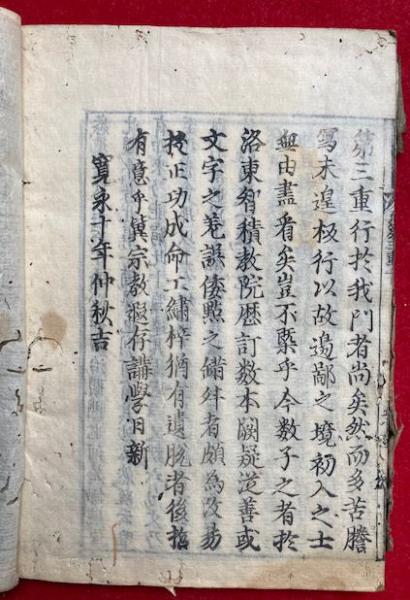 第三重行於我門者尚矣然而多苦謄
寫未遑板行以故邊鄙之境初入之士
無由盡看矣豈不緊乎今數子之者於
洛東智積教院歷訂數本闕疑從善或
文字之差誤倭點之錯舛者頗為改易
挍正功成命工繡梓猶有遺脫者後哲
有意乎冀宗教遐存講學日新
寬永十年仲秋吉